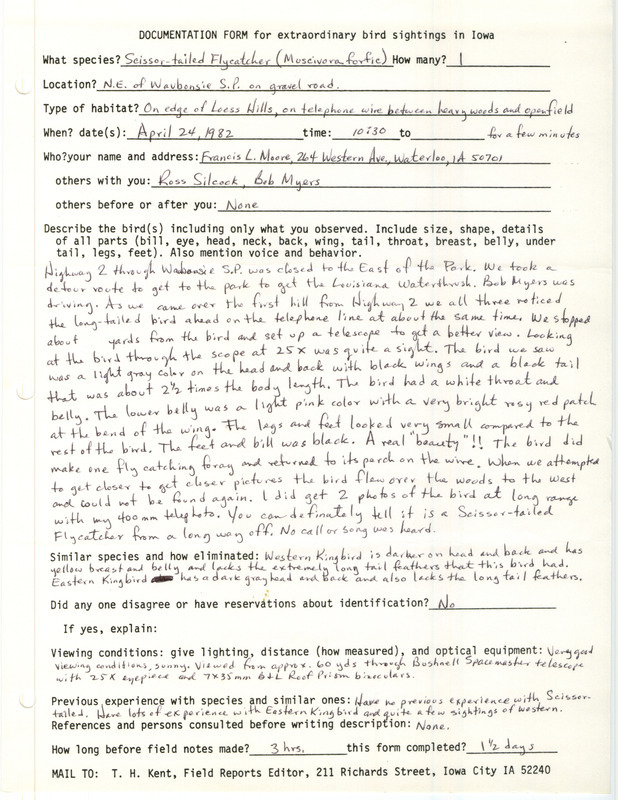 DOCUMENTATION FORM for extraordinary bird sightings in Iowa
What species? Scissor-tailed Flycatcher (Muscivora forfic) How many? 1
Location? N.E. of Waubonsie S.P. on gravel road.
Type of habitat? On edge of Loess Hills, on telephone wire between heavy woods and open field
When? date(s): April 24, 1982 time: 10:30 to for a few minutes
Who? your name and address: Francis L. Moore, 264 Western Ave., Waterloo, IA 50701
others with you: Ross Silcock, Bob Myers
others before or after you: None
Describe the bird(s) including only what you observed. Include size, shape, details
of all parts (bill, eye, head, neck, back, wing, tail, throat, breast, belly, under
tail, legs, feet). Also mention voice and behavior.
Highway 2 through Waubonsie S.P. was closed to the East of the Park. We took a
detour route to get to the park to get the Louisiana Waterthrush. Bob Myers was
driving. As we came over the first hill from Highway 2 we all three noticed
the long-tailed bird ahead on the telephone line at about the same time. We stopped
about yards from the bird and set up a telescope to get a better view. Looking
at the bird through the scope at 25X was quite a sight. The bird we saw
was a light gray color on the head and back with black wings and a black tail
that was about 2½ times the body length. The bird had a white throat and
belly. The lower belly was a light pink color with a very bright rosy red patch
at the bend of the wing. The legs and feet looked very small compared to the
rest of the bird. The feet and bill was black. A real "beauty"!! The bird did
make one fly catching foray and returned to its perch on the wire. When we attempted
to get closer to get closer pictures the bird flew over the woods to the west
and could not be found again. I did get 2 photos of the bird at long range
with my 400mm telephoto. You can definately tell it is a Scissor-tailed
Flycatcher from a long way off. No call or song was heard.
Similar species and how eliminated: Western Kingbird is darker on head and back and has
yellow breast and belly and lacks the extremely long tail feathers that this bird had.
Eastern Kingbird has a dark gray head and back and also lacks the long tail feathers.
Did any one disagree or have reservations about identification? No
If yes, explain:
Viewing conditions: give lighting, distance (how measured), and optical equipment: Very good
viewing conditions, sunny. Viewed from approx. 60 yds through Bushnell Spacemaster telescope
with 25X eyepiece and 7X35mm B+L Roof Prism binoculars.
Previous experience with species and similar ones: Have no previous experience with Scissor-
tailed. Have lots of experience with Eastern Kingbird and quite a few sightings of western.
References and persons consulted before writing description: None.
How long before field notes made? 3 hrs. this form completed? 1½ days
MAIL TO: T. H. Kent, Field Reports Editor, 211 Richards Street, Iowa City IA 52240